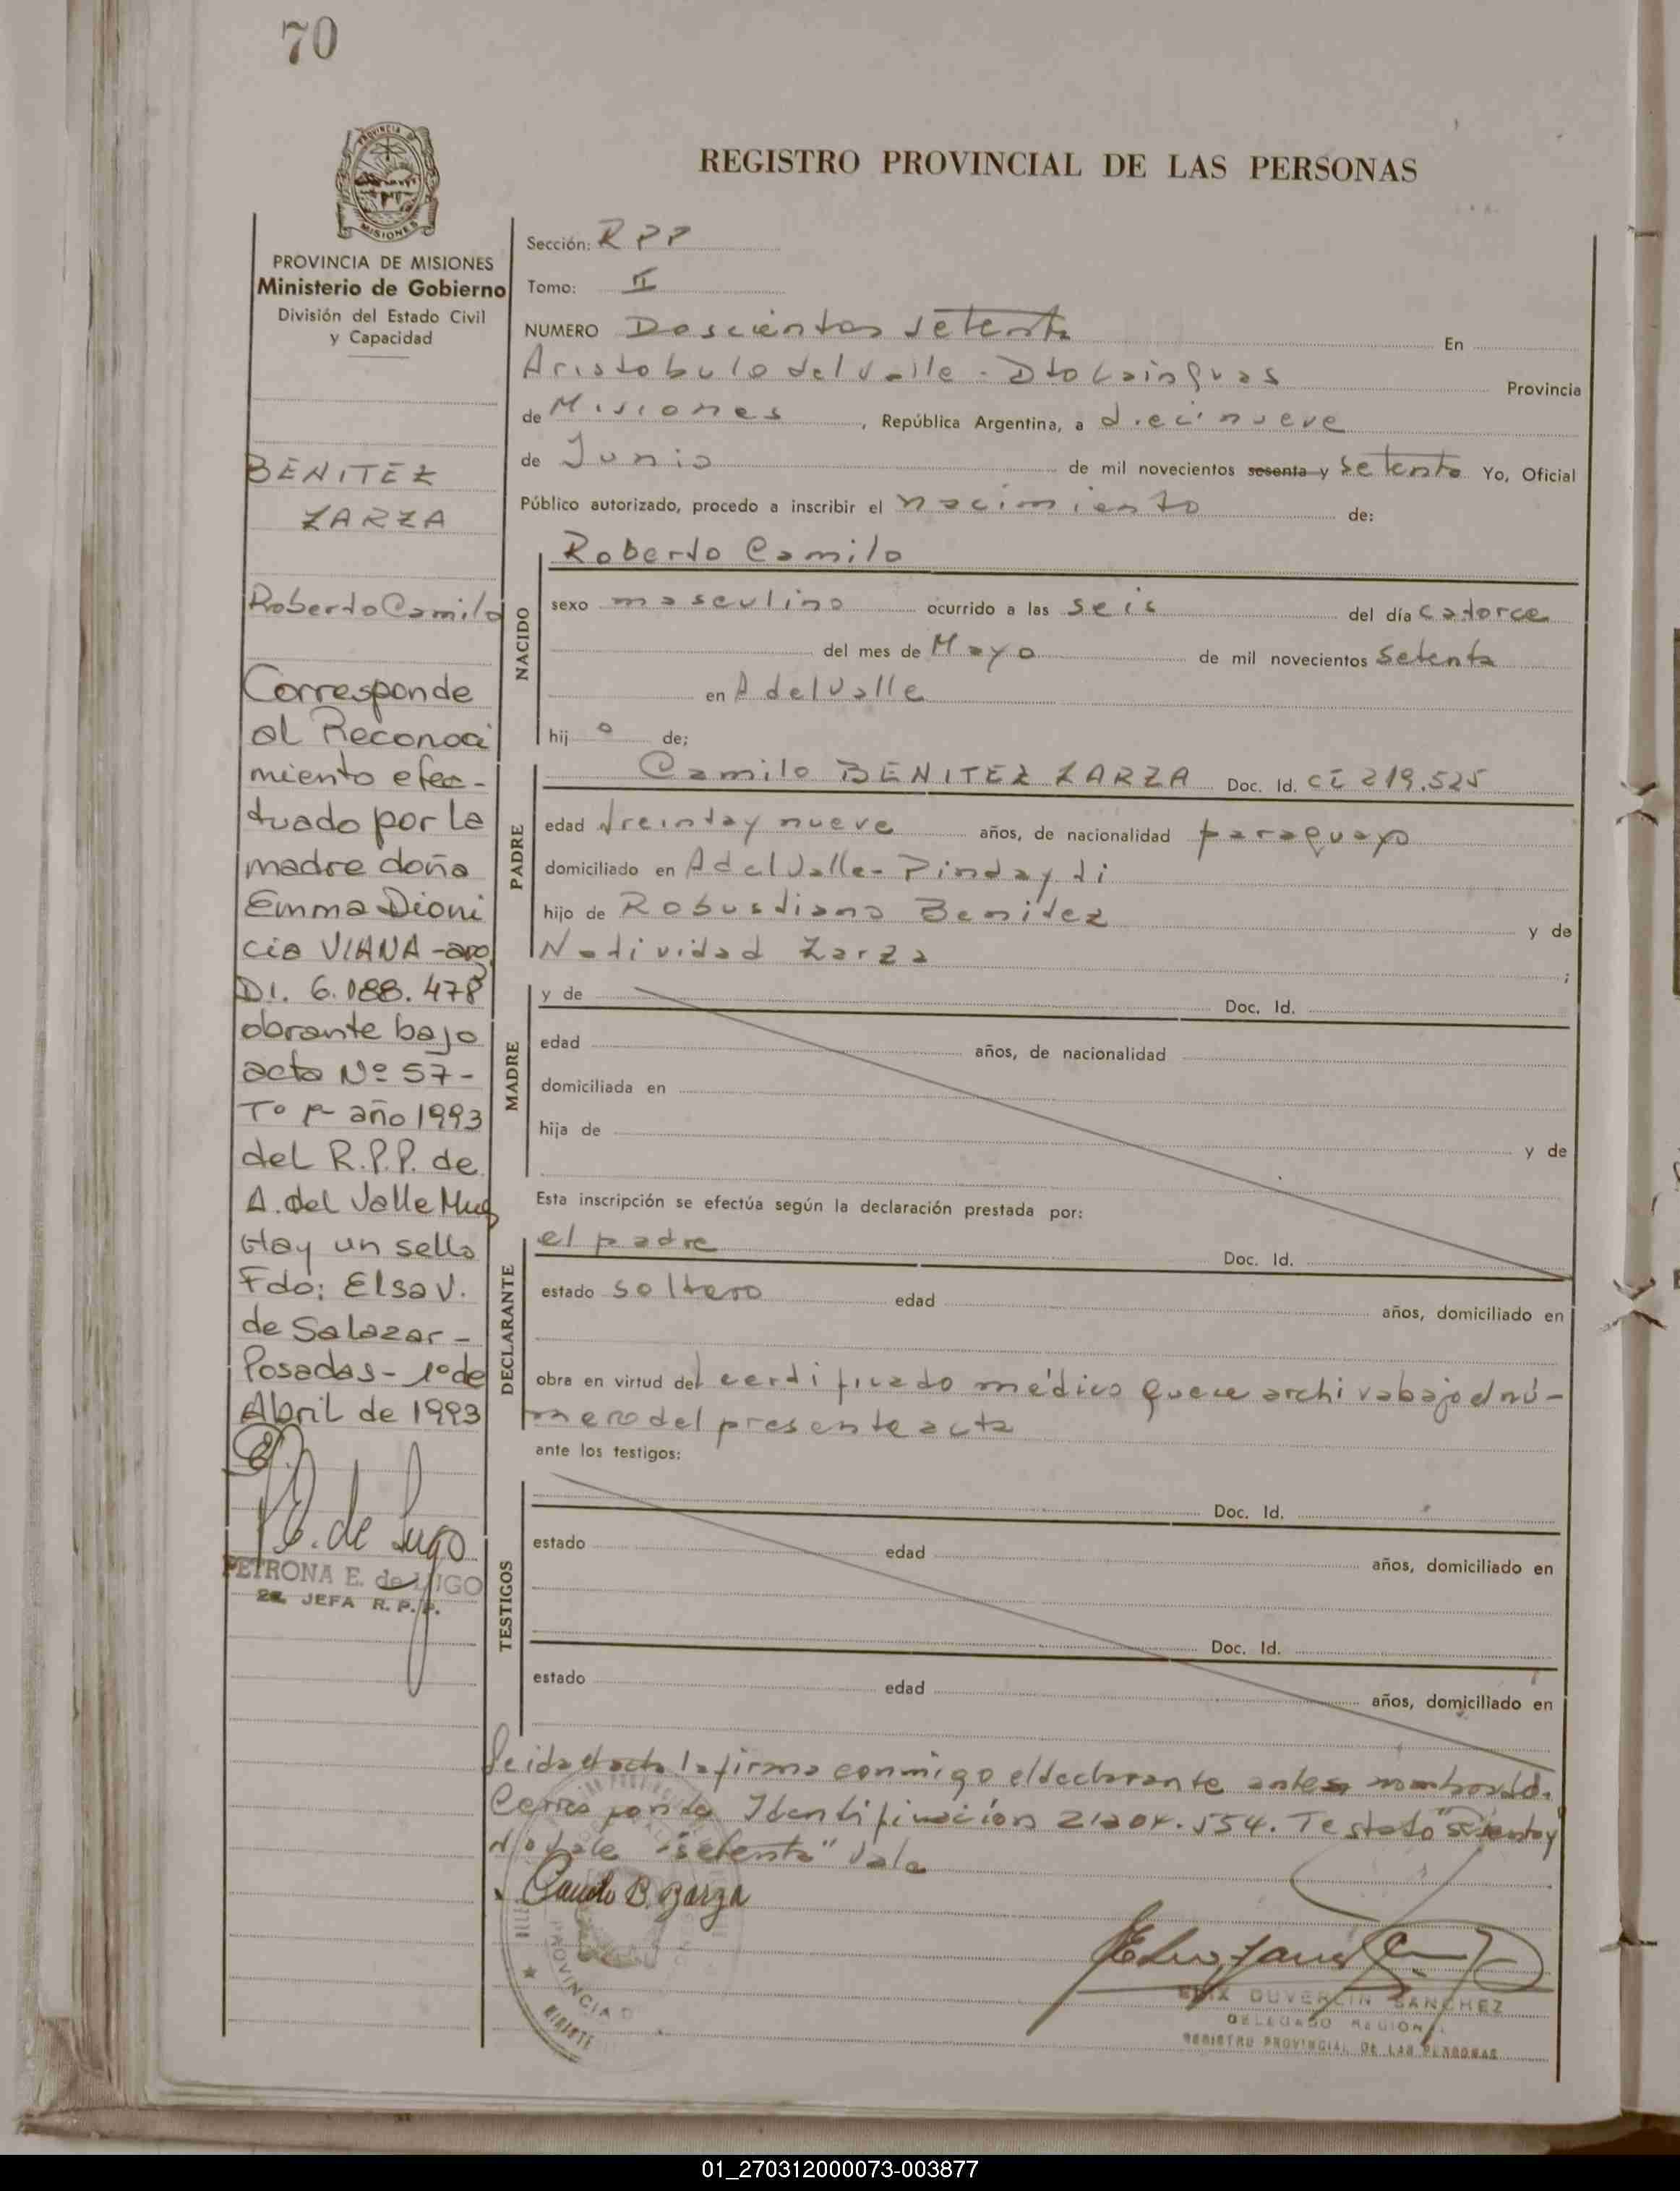 70
PROVINCIA DE
MISIONES
PROVINCIA DE MISIONES
Ministerio de Gobierno
División del Estado Civil
y Capacidad
BENITEZ
ZARZA
Roberto Camilo
Corresponde
al Reconoci
miento efec-
tuado por la
madre doña
Emma Dioni
cia VIANA -arg
DI. 6.088.478
obrante bajo
acta Nº 57-
Tº 1º año 1993
del R.P.P. de
A. del Valle Mnes
Hay un sello
Fdo: Elsa V.
de Salazar -
Posadas - 1º de
Abril de 1993
E. de Lugo
PETRONA E. de LUGO
2a. JEFA R. P. P.
REGISTRO PROVINCIAL DE LAS PERSONAS
Sección: R P P
Tomo: II
NUMERO Doscientos setenta En
Aristobulo del Valle - Dto Cainguas Provincia
de Misiones, República Argentina, a diecinueve
de Junio de mil novecientos sesenta y setenta Yo, Oficial
Público autorizado, procedo a inscribir el nacimiento de:
NACIDO
Roberto Camilo
sexo masculino ocurrido a las seis del día catorce
del mes de Mayo de mil novecientos setenta
en A del Valle
hij o de;
PADRE
Camilo BENITEZ ZARZA Doc. Id. CI 219.525
edad treinta y nueve años, de nacionalidad paraguayo
domiciliado en A del Valle - Pindayti
hijo de Robustiano Benitez y de
Natividad Zarza ;
MADRE
y de Doc. Id.
edad años, de nacionalidad
domiciliada en
hija de y de
Esta inscripción se efectúa según la declaración prestada por:
DECLARANTE
el padre Doc. Id.
estado soltero edad años, domiciliado en
obra en virtud del certificado médico que se archiva bajo el nú-
mero del presente acta
ante los testigos:
TESTIGOS
Doc. Id.
estado edad años, domiciliado en
Doc. Id.
estado edad años, domiciliado en
Leida el acta la firma conmigo el declarante antes nombrado.
Corresponde Identificación 21204.554. Testado "sesenta y
No vale "setenta" Vale
Camilo B. Zarza
PROVINCIA D
DUVERLIN SANCHEZ
DELEGADO REGIONAL
REGISTRO PROVINCIAL DE LAS PERSONAS
01_270312000073-003877